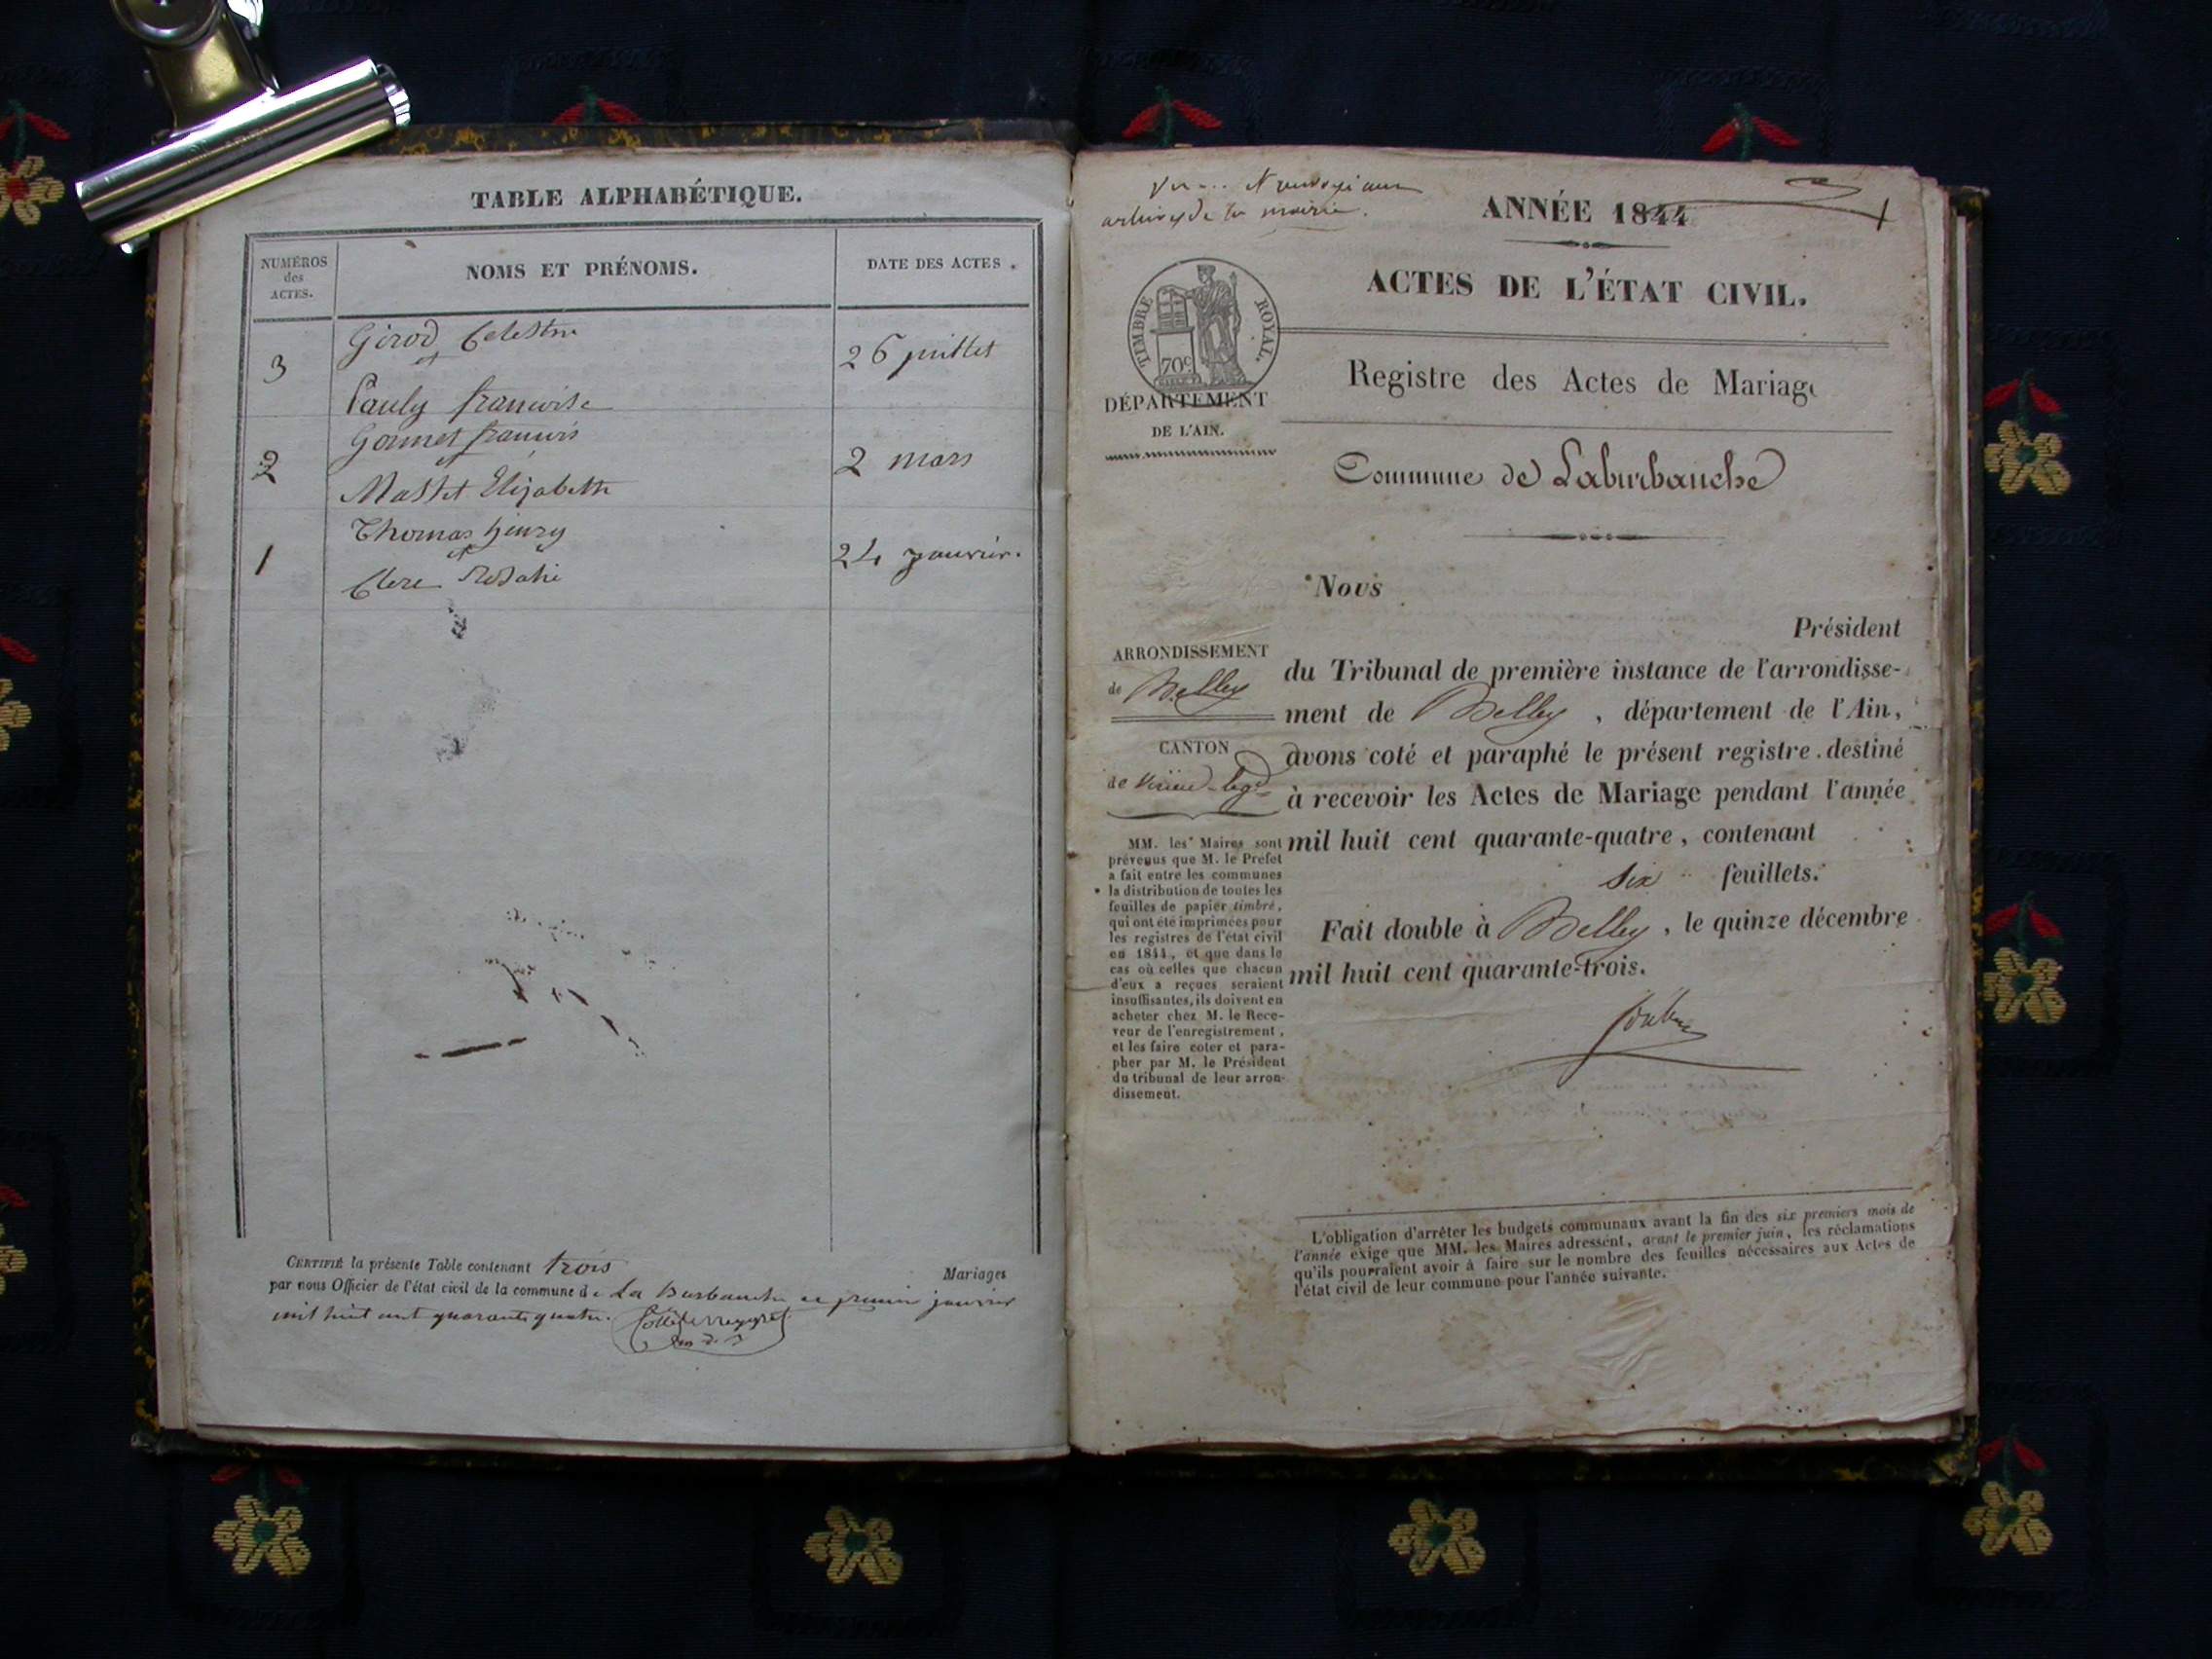 TABLE ALPHABÉTIQUE.
NUMÉROS
des
ACTES.
NOMS ET PRÉNOMS.
DATE DES ACTES.
3
Girod Celestin
et
Pauly francoise
26 juillet
2
Gonnet francois
et
Elizabeth
2 mars
1
Thomas henry
et
Clerc Rosalie
24 janvier.
CERTIFIÉ la présente Table contenant trois
Mariages
par nous Officier de l'état civil de la commune de La Burbanche ce premier janvier
mil huit cent quarante quatre.
archives de la mairie.
ANNÉE 1844
ACTES DE L'ÉTAT CIVIL.
TIMBRE ROYAL.
70c
DÉPARTEMENT
DE L'AIN.
Registre des Actes de Mariage
Commune de Laburbanche
Nous
Président
ARRONDISSEMENT
de Belley
CANTON
de Virieu-
du Tribunal de première instance de l'arrondisse-
ment de Belley, département de l'Ain,
avons coté et paraphé le présent registre destiné
à recevoir les Actes de Mariage pendant l'année
mil huit cent quarante-quatre, contenant
six feuillets.
Fait double à Belley, le quinze décembre
mil huit cent quarante-trois.
MM. les Maires sont
prévenus que M. le Préfet
a fait entre les communes
la distribution de toutes les
feuilles de papier timbré,
qui ont été imprimées pour
les registres de l'état civil
en 1844, et que dans le
cas où celles que chacun
d'eux a reçues seraient
insuffisantes, ils doivent en
acheter chez M. le Rece-
veur de l'enregistrement,
et les faire coter et para-
pher par M. le Président
du tribunal de leur arron-
dissement.
L'obligation d'arrêter les budgets communaux avant la fin des six premiers mois de
l'année exige que MM. les Maires adressent, avant le premier juin, les réclamations
qu'ils pourraient avoir à faire sur le nombre des feuilles nécessaires aux Actes de
l'état civil de leur commune pour l'année suivante.